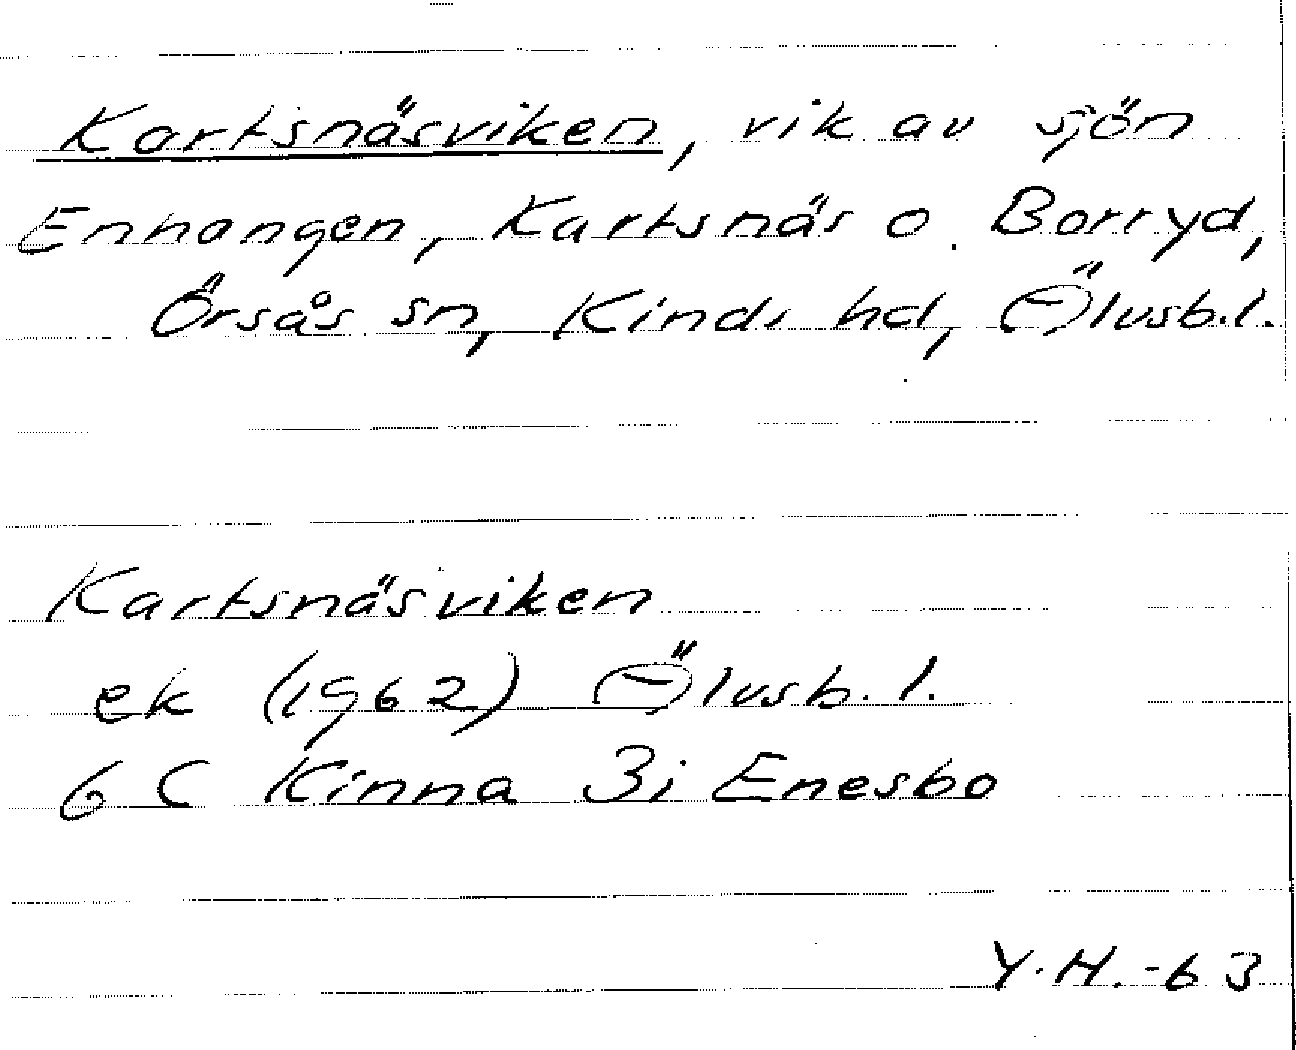 Kartsnäsviken, vik av sjön
Enhangen, Kartsnäs o. Borryd,
Örsås sn, Kinds hd, Älvsb.l.
Kartsnäsviken
ek (1962) Älvsb.l.
6 C Kinna 3i Enesbo
Y.H.-63